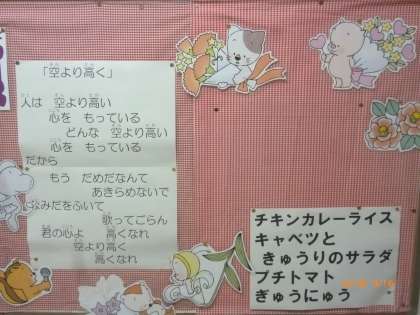 「空より高く」
人は 空より高い
心を もっている
どんな 空より高い
心を もっている
だから
もう だめだなんて
あきらめないで
なみだをふいて
歌ってごらん
君の心よ 高くなれ
空より高く
高くなれ
チキンカレーライス
キャベツと
きゅうりのサラダ
プチトマト
ぎゅうにゅう